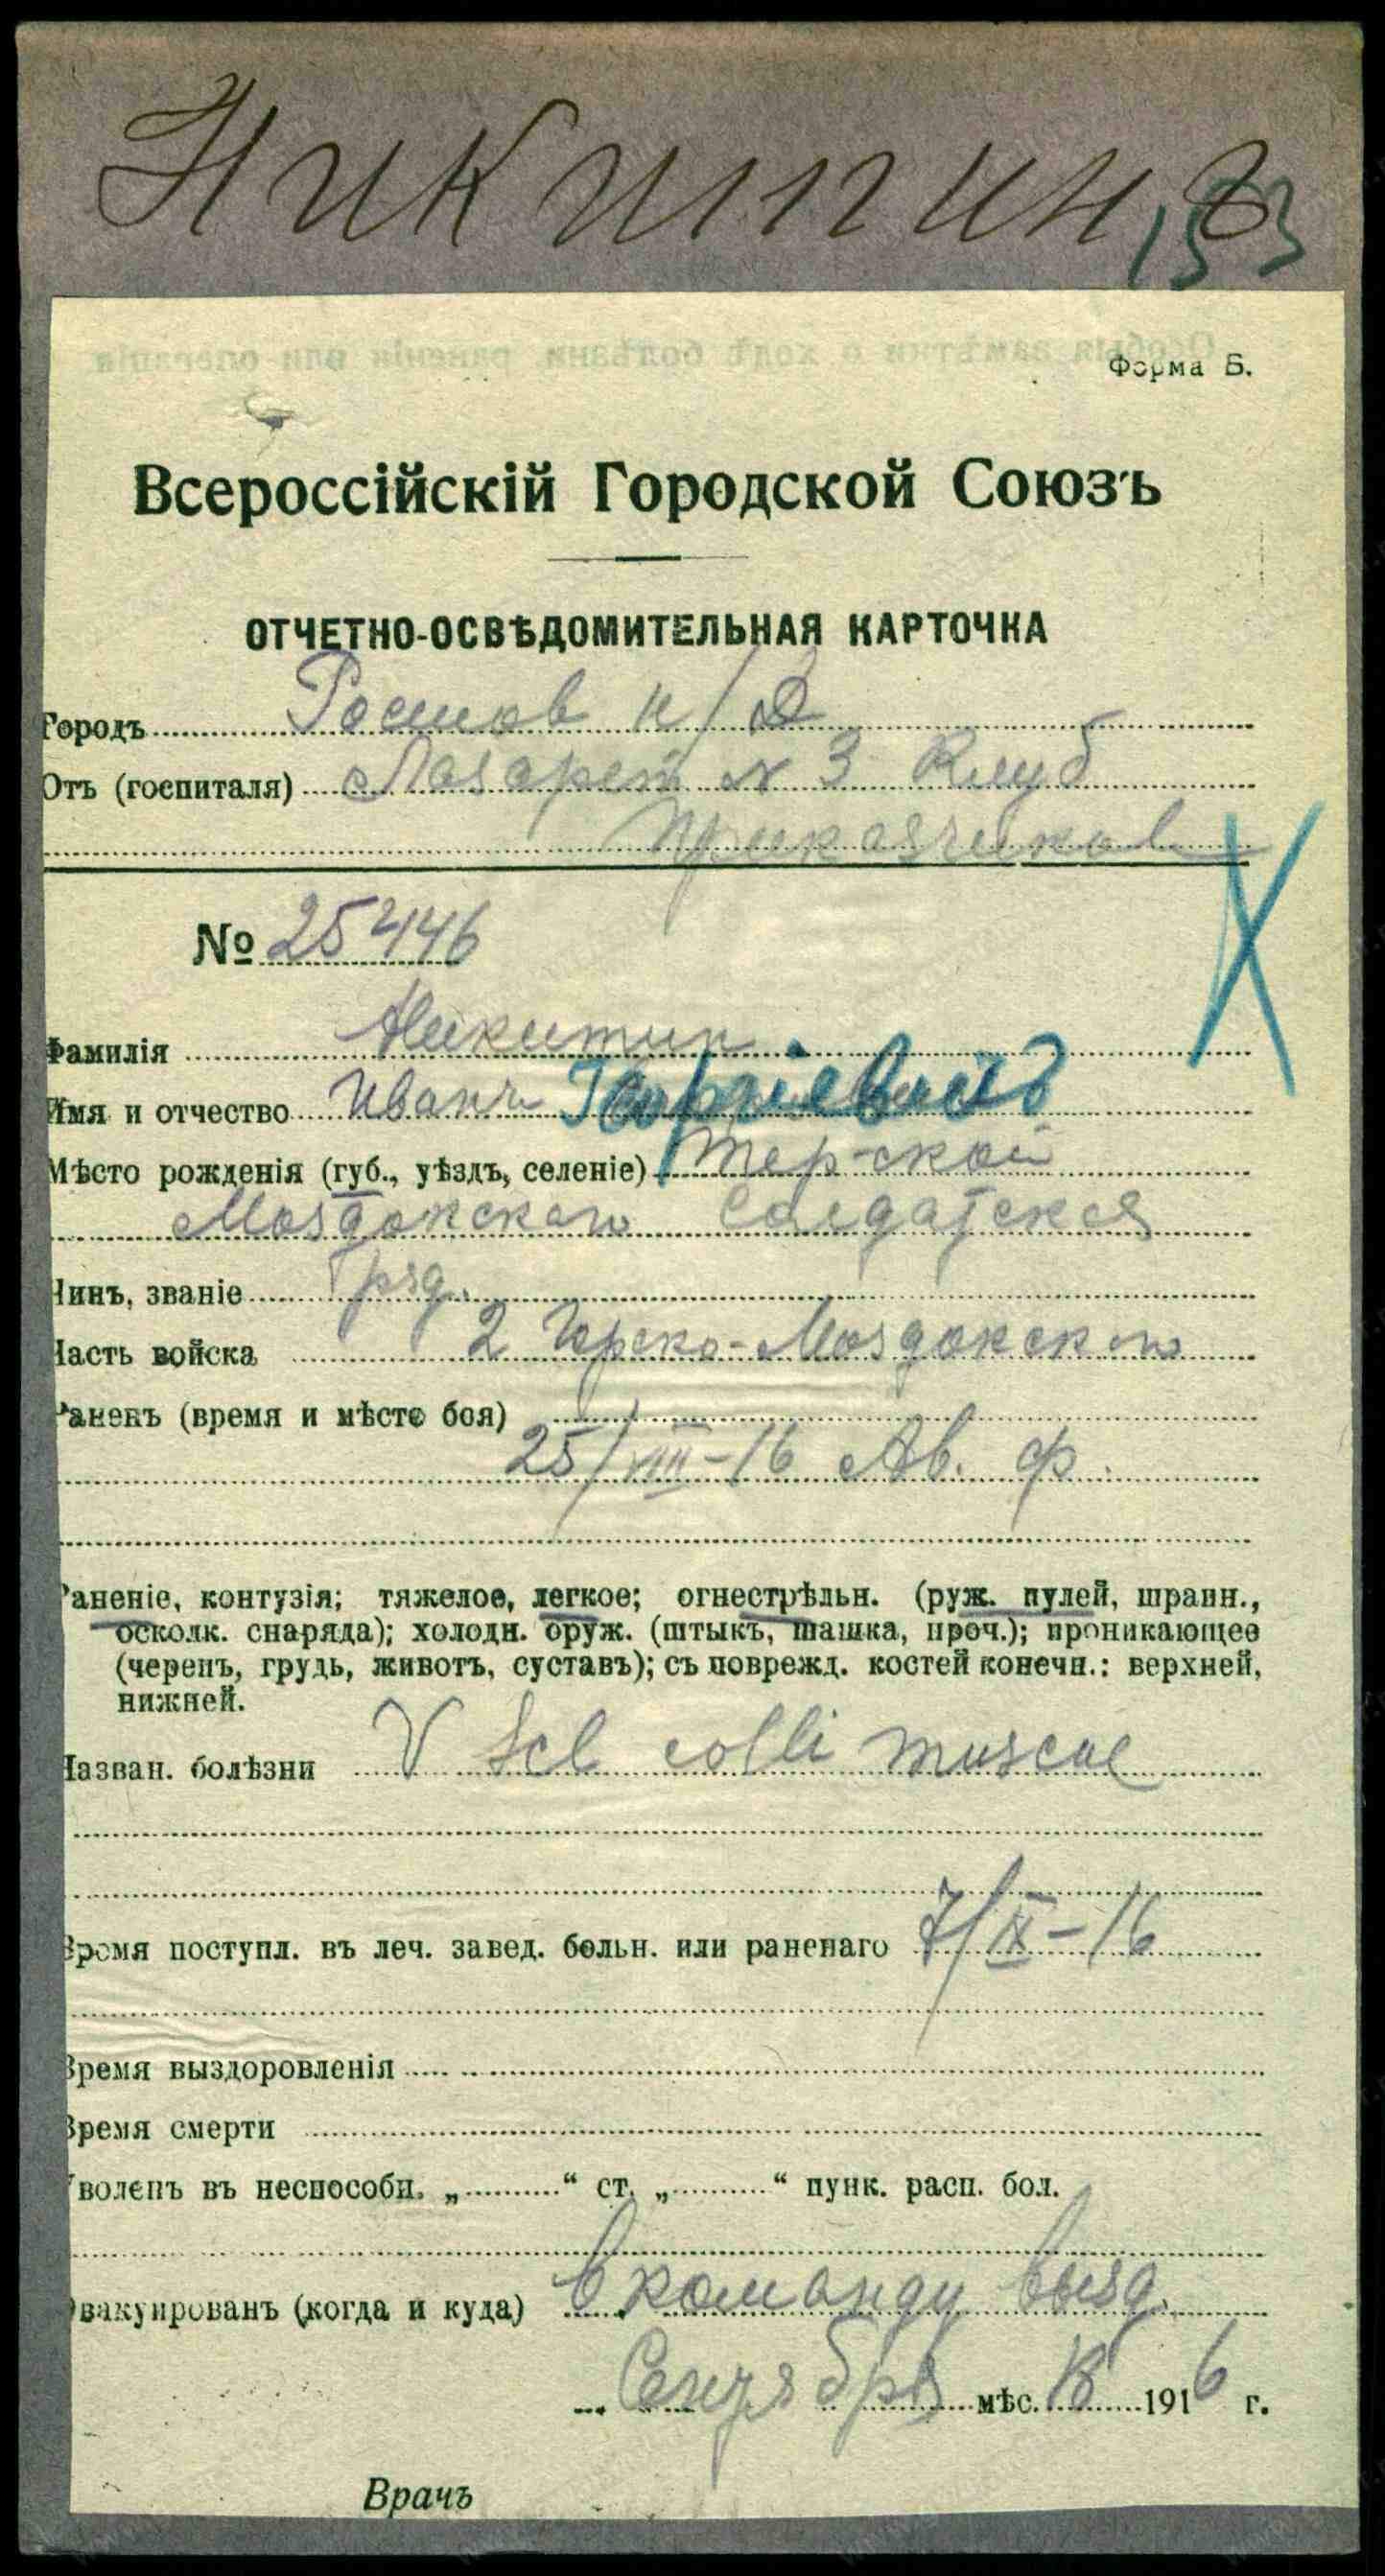 Никитинъ
153
Форма Б.
Всероссійскій Городской Союзъ
ОТЧЕТНО-ОСВѢДОМИТЕЛЬНАЯ КАРТОЧКА
Городъ Ростов н/Д
Отъ (госпиталя) Лазарет № 3 Клуб
Приказчиков
№ 25446
Фамилія Никитин
Имя и отчество Иванъ Георгіевичъ
Мѣсто рожденія (губ., уѣздъ, селеніе) Терской
Моздокскаго Солдатская
Чинъ, званіе ряд.
Часть войска 2 Горско-Моздокского
Раненъ (время и мѣсто боя)
25/VIII-16 Ав. ф.
Раненіе, контузія; тяжелое, легкое; огнестрѣльн. (руж. пулей, шрапн.,
осколк. снаряда); холодн. оруж. (штыкъ, шашка, проч.); проникающее
(черепъ, грудь, животъ, суставъ); съ поврежд. костей конечн.: верхней,
нижней.
Назван. болѣзни V Scl colli muscul
Время поступл. въ леч. завед. больн. или раненаго 7/IX-16
Время выздоровленія
Время смерти
Уволенъ въ неспособн. „ “ ст. „ “ пунк. расп. бол.
Эвакуированъ (когда и куда) в команду вызд.
Сентября мѣс. 18 1916 г.
Врачъ